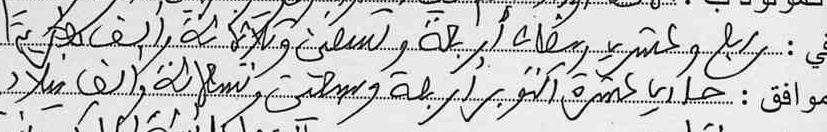 في : رابع وعشرين رمضان أربعة وتسعين وثلاثمائة وألف هجرية
موافق : حادية عشرة أكتوبر أربعة وسبعين وتسعمائة وألف ميلادية